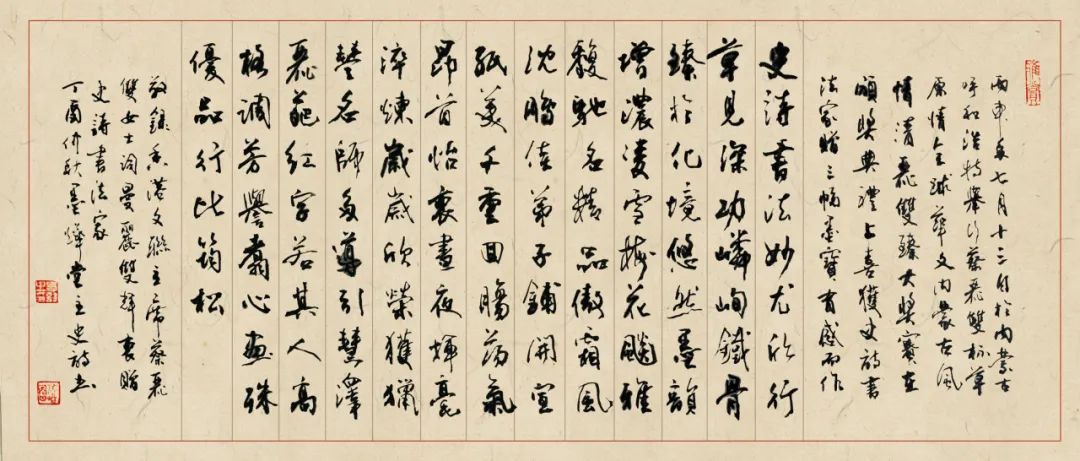 丙申年七月十三日於内蒙古
呼和浩特舉行蔡麗雙杯草
原情全球華文内蒙古風
情清麗雙臻大獎賽在
頒獎典禮上喜獲史詩書
法家贈三幅墨寶有感而作
史詩書法妙尤欣行
草見深功嶙峋鐵骨
臻於化境悠然墨韻
增濃凌雪梅花飄雅
馥馳名精品傲霜風
沈鵬佳弟子鋪開宣
紙美千重回腸蕩氣
昂首怡衷晝夜輝毫
淬煉歲歲欣榮獲獵
譽名師多導引慧澤
麗葩紅字若其人高
格調芳譽翥心畫殊
優品行比筠松
敬錄香港文聯主席蔡麗
雙女士詞曼麗雙輝衷贈
史詩書法家
丁酉仲秋墨堂主史詩書